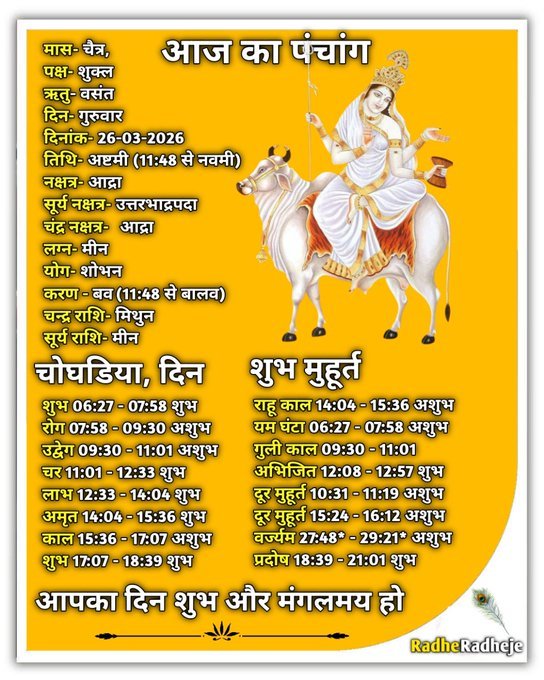 आज का पंचांग
मास- चैत्र,
पक्ष- शुक्ल
ऋतु- वसंत
दिन- गुरुवार
दिनांक- 26-03-2026
तिथि- अष्टमी (11:48 से नवमी)
नक्षत्र- आद्रा
सूर्य नक्षत्र- उत्तरभाद्रपदा
चंद्र नक्षत्र- आद्रा
लग्न- मीन
योग- शोभन
करण - बव (11:48 से बालव)
चन्द्र राशि- मिथुन
सूर्य राशि- मीन
चोघडिया, दिन
शुभ 06:27 - 07:58 शुभ
रोग 07:58 - 09:30 अशुभ
उद्वेग 09:30 - 11:01 अशुभ
चर 11:01 - 12:33 शुभ
लाभ 12:33 - 14:04 शुभ
अमृत 14:04 - 15:36 शुभ
काल 15:36 - 17:07 अशुभ
शुभ 17:07 - 18:39 शुभ
शुभ मुहूर्त
राहू काल 14:04 - 15:36 अशुभ
यम घंटा 06:27 - 07:58 अशुभ
गुली काल 09:30 - 11:01
अभिजित 12:08 - 12:57 शुभ
दूर मुहूर्त 10:31 - 11:19 अशुभ
दूर मुहूर्त 15:24 - 16:12 अशुभ
वर्ज्यम 27:48* - 29:21* अशुभ
प्रदोष 18:39 - 21:01 शुभ
आपका दिन शुभ और मंगलमय हो
RadheRadheje